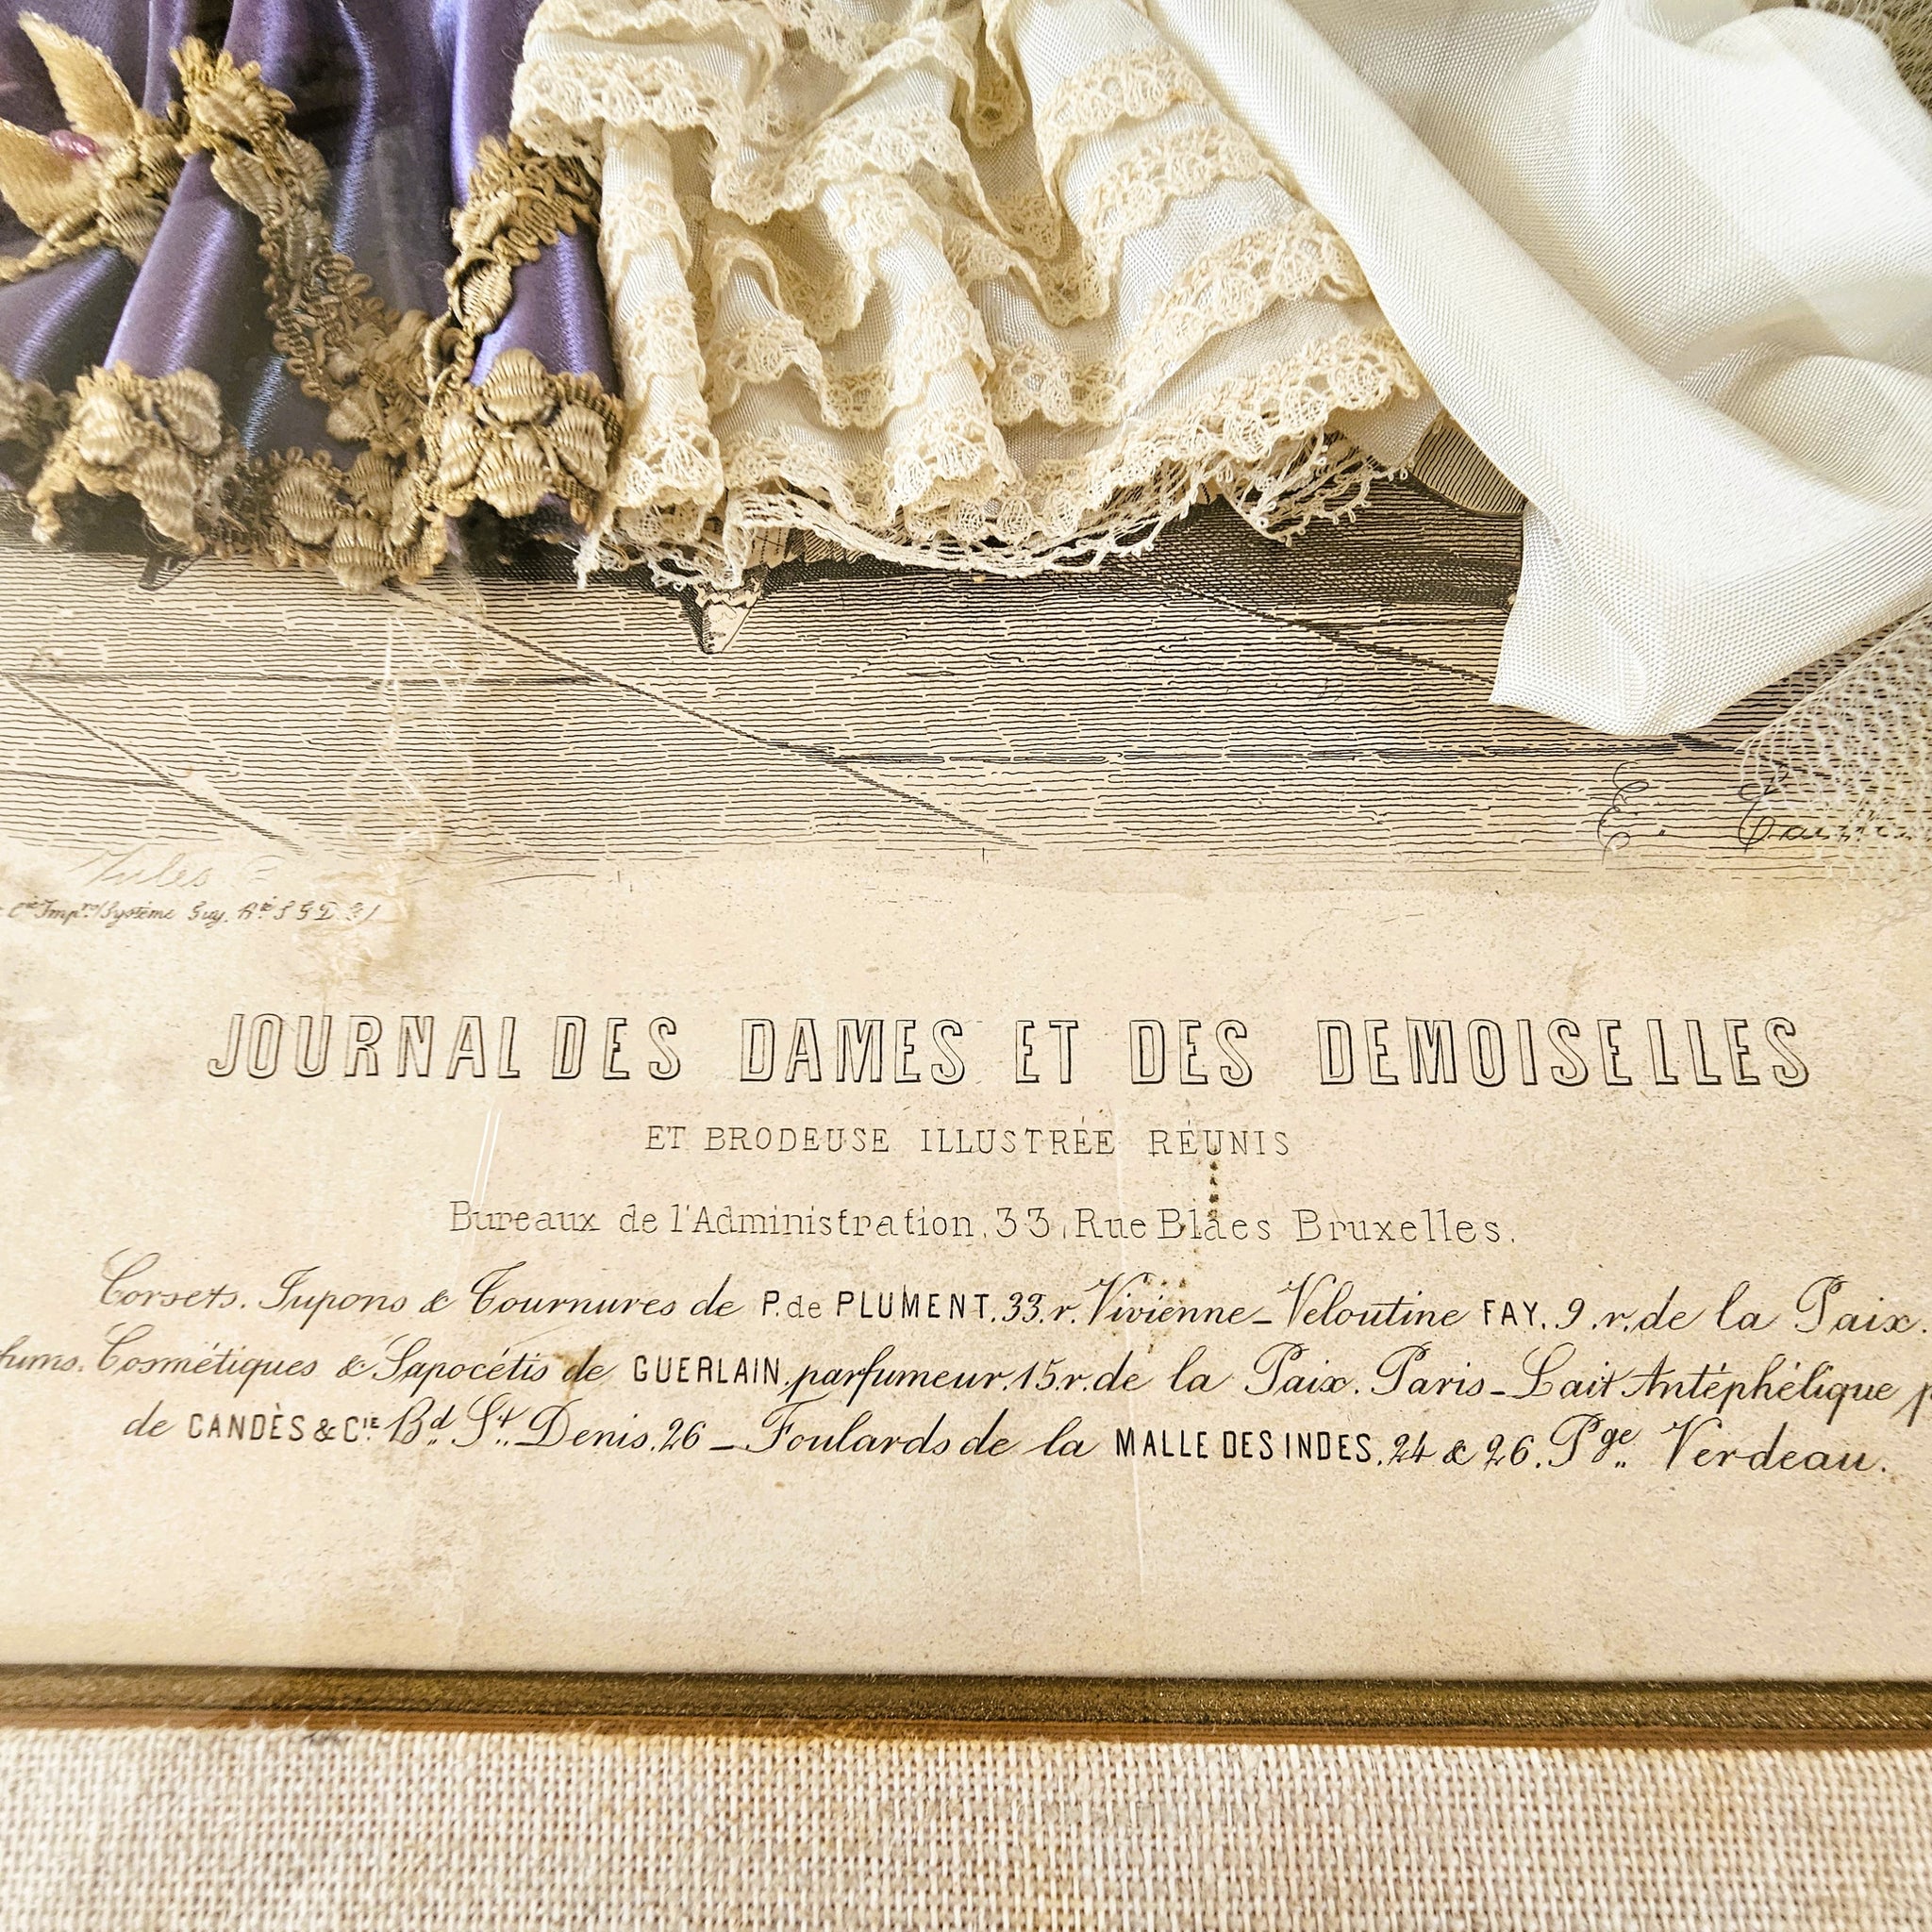 E.
Jules
Impr. Système Guy, Bté S G D G
JOURNAL DES DAMES ET DES DEMOISELLES
ET BRODEUSE ILLUSTRÉE RÉUNIS
Bureaux de l'Administration, 33, Rue Blaes Bruxelles.
Corsets. Jupons & Tournures de P. de PLUMENT. 33. r. Vivienne_Veloutine FAY. 9. r. de la Paix.
Cosmétiques & Sapocétis de GUERLAIN, parfumeur. 15. r. de la Paix. Paris_Lait Antéphélique
de CANDÈS & Cie. Bd. St. Denis. 26_Foulards de la MALLE DES INDES. 24 & 26. Pge. Verdeau.